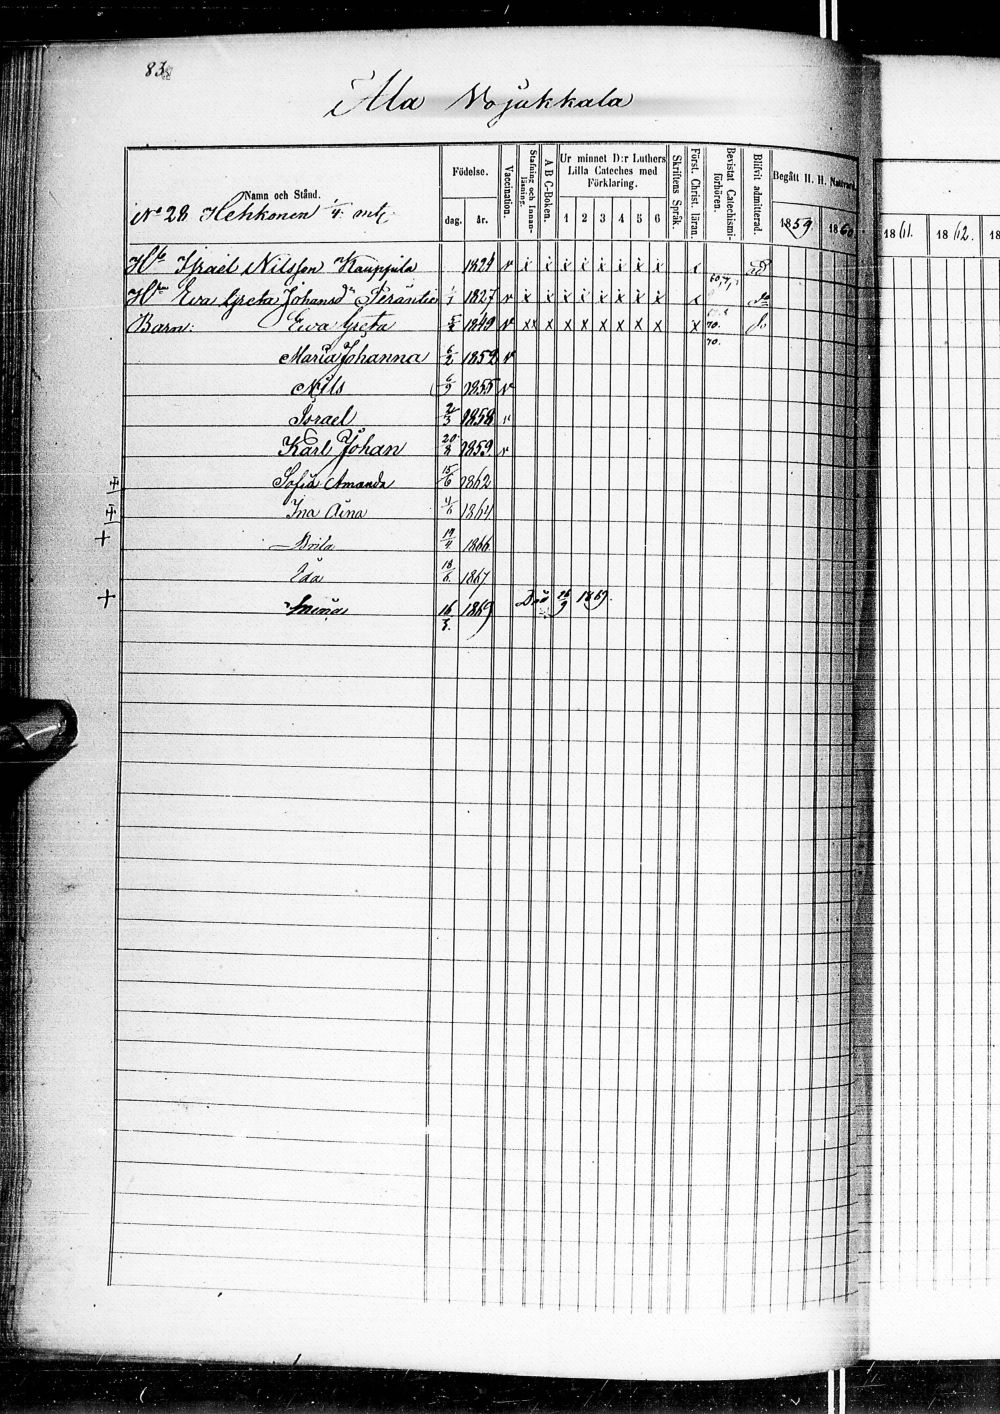 83
Ala Vojakkala
Namn och Stånd.
Födelse.
dag. år.
Vaccination.
Stafning och Innanläsning.
A B C-Boken.
Ur minnet D:r Luthers
Lilla Cateches med
Förklaring.
1 2 3 4 5 6
Skriftens Språk.
Först. Christ. läran.
Bevistat Catechismiförhören.
Blifvit admitterad
Begått H. H. Nattvard.
1859. 1860. 1861. 1862. 18
No 28 Hehkonen 1/4 mtl
Israel Nilsson Kauppila 1824 v
Eva Greta Johansd:r 1/1 1827 v
Barn: Eva Greta 1849 v xx x x x x x x x x 70.
70.
Maria Johanna 6/2 1852 v
Nils 6/9 1855 v
Israel 2/3 1858 v
Karl Johan 20/8 1859 v
Sofia Amanda 15/6 1862
Ina Aina 1864
Brita 19/4 1866
Ida 18/6 1867
+ 16/3. 1869 Död 16/9 1869.